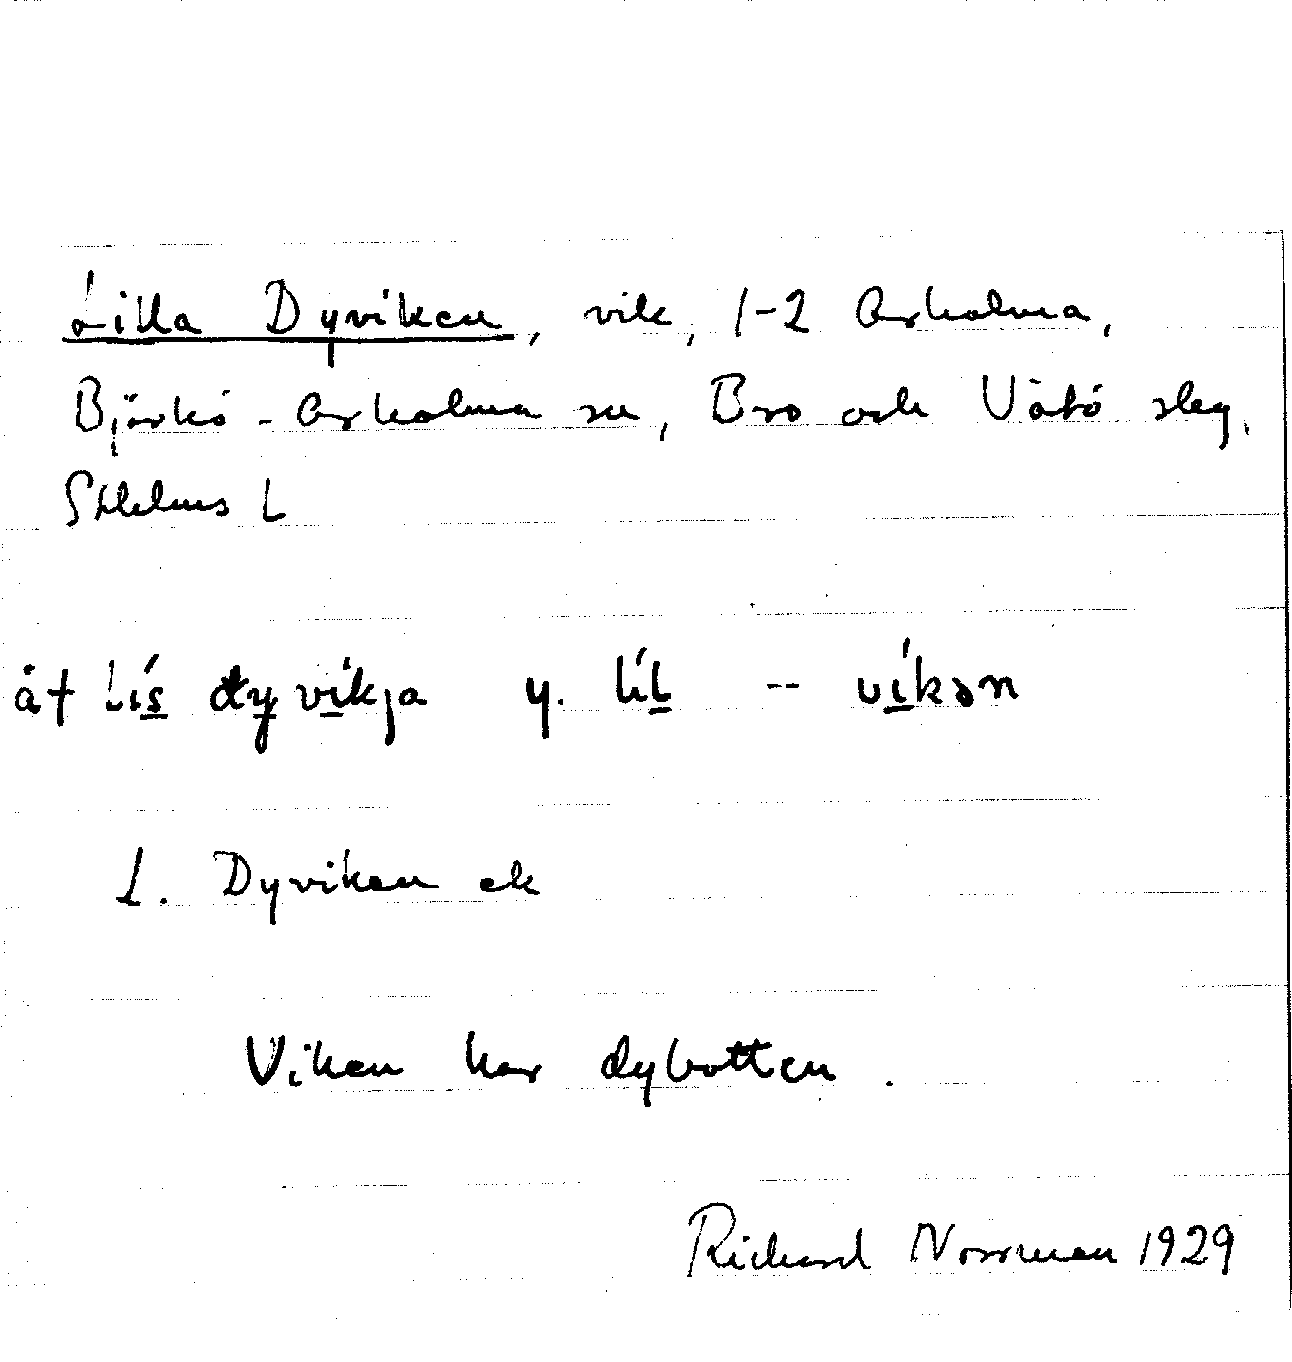 Lilla Dyviken, vik, 1-2 Arholma,
Björkö-Arholma sn, Bro och Vätö slag,
Sthlms L
åt lís dyvíkja y. líl -- víkən
L. Dyviken ek
Viken har dybotten.
Richard Norrman 1929